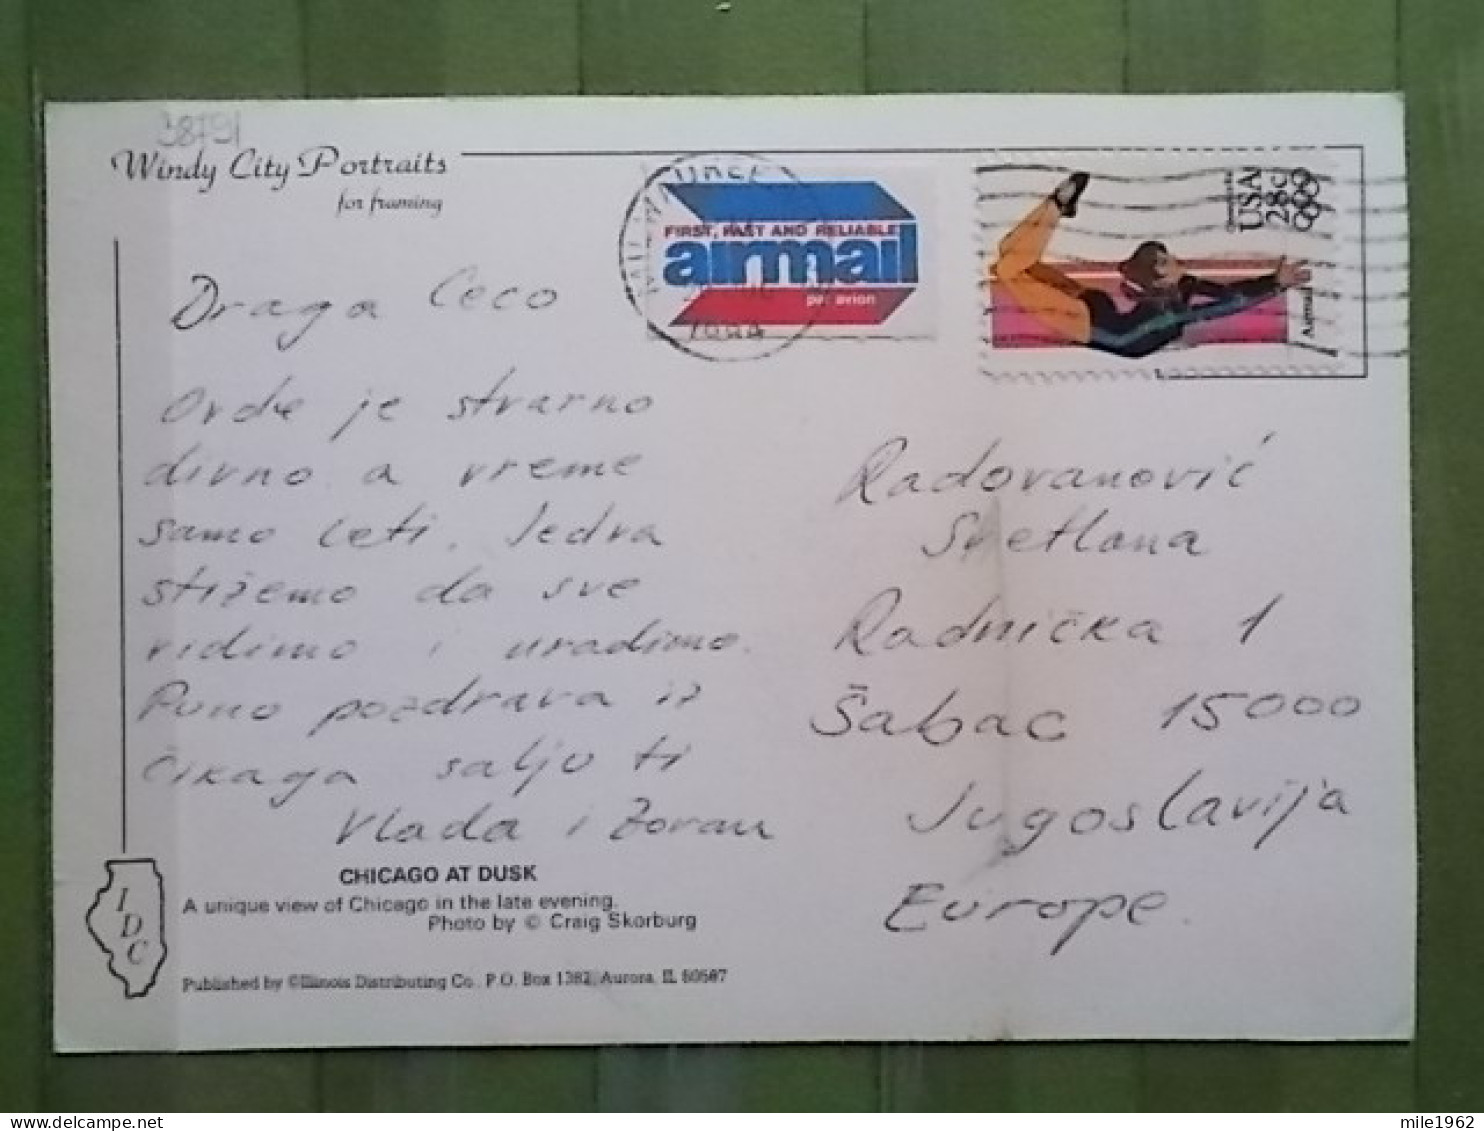 38791
Windy City Portraits
for framing
MILWAUKEE
1984
FIRST, FAST AND RELIABLE
airmail
par avion
USA
28c
Airmail
Draga Ceco
Ovde je stvarno
divno a vreme
samo leti. Jedva
stižemo da sve
vidimo i uradimo.
Puno pozdrava iz
čikaga salju ti
Vlada i Zoran
Radovanović
Svetlana
Radnička 1
Šabac 15000
Jugoslavija
Europe.
CHICAGO AT DUSK
A unique view of Chicago in the late evening.
Photo by © Craig Skorburg
IDC
Published by ©Illinois Distributing Co., P.O. Box 1382, Aurora, IL 60507
mile1962